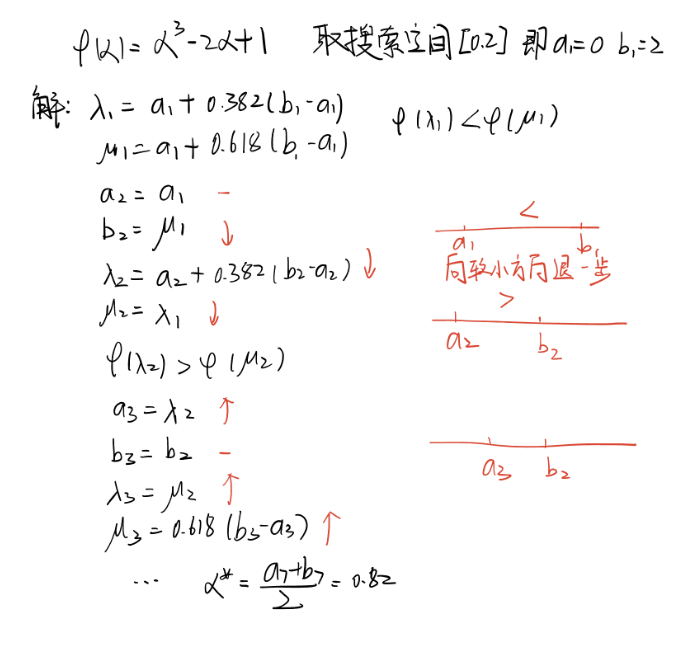 φ(α)=α³-2α+1 取搜索空间[0.2] 即a₁=0 b₁=2
解: λ₁=a₁+0.382(b₁-a₁)
φ(λ₁)<φ(μ₁)
μ₁=a₁+0.618(b₁-a₁)
a₂=a₁ -
b₂=μ₁ ↓
λ₂=a₂+0.382(b₂-a₂) ↓
μ₂=λ₁ ↓
φ(λ₂)>φ(μ₂)
a₃=λ₂ ↑
b₃=b₂ -
λ₃=μ₂ ↑
μ₃=0.618(b₃-a₃) ↑
... α*=(a₇+b₇)/2=0.82
<
a₁ b₁
向较小方向退一步
>
a₂ b₂
a₃ b₂